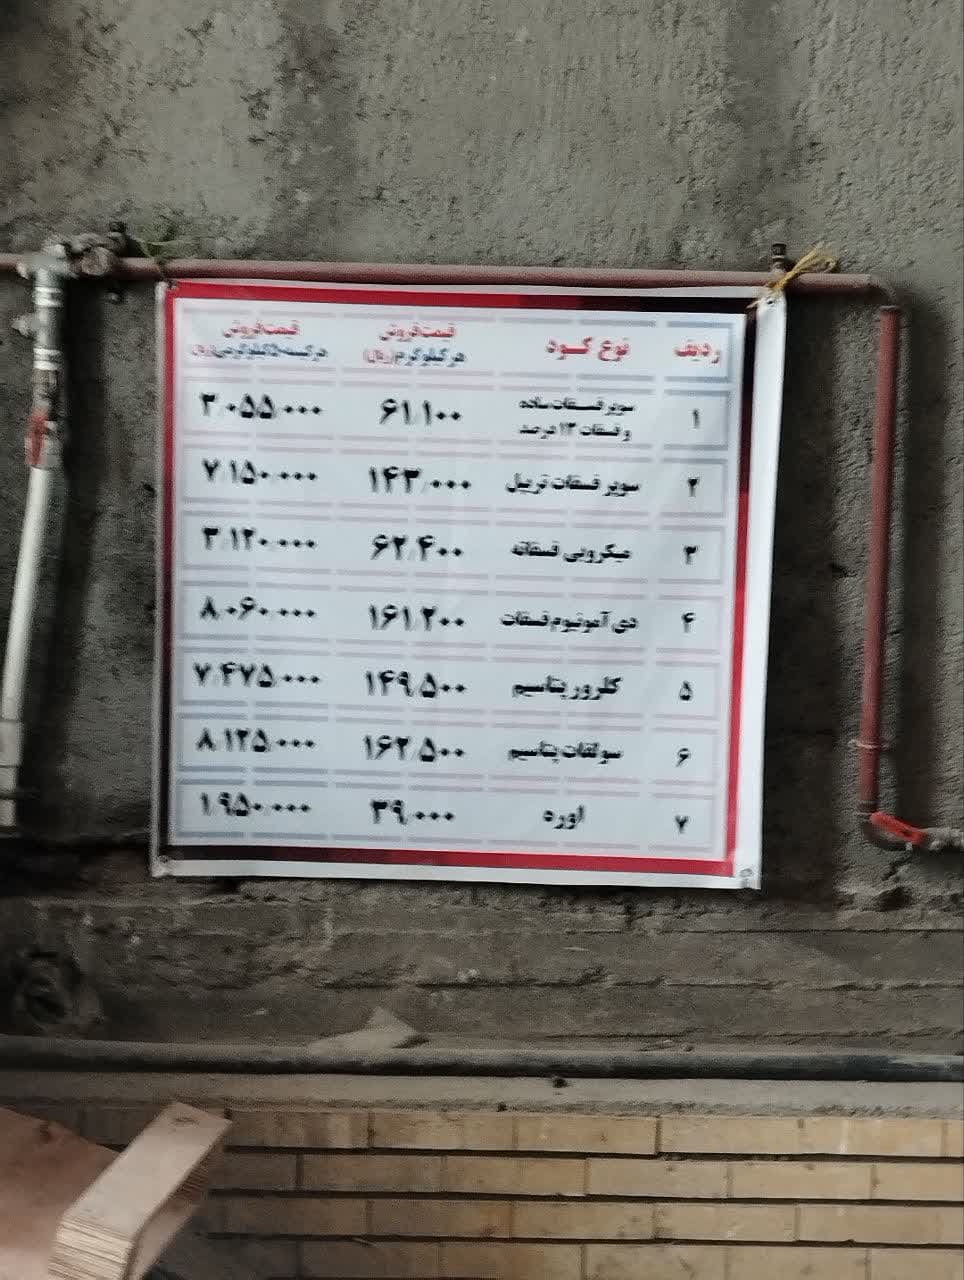 ردیف نوع کود قیمت فروش هر کیلوگرم (ریال) قیمت فروش هر کیسه ۵۰ کیلوگرمی (ریال)
۱ سوپر فسفات ساده و فسفات ۱۳ درصد ۶۱/۱۰۰ ۳/۰۵۵/۰۰۰
۲ سوپر فسفات تریپل ۱۴۳/۰۰۰ ۷/۱۵۰/۰۰۰
۳ میکروبی فسفاته ۶۲/۴۰۰ ۳/۱۲۰/۰۰۰
۴ دی آمونیوم فسفات ۱۶۱/۲۰۰ ۸/۰۶۰/۰۰۰
۵ کلرور پتاسیم ۱۴۹/۵۰۰ ۷/۴۷۵/۰۰۰
۶ سولفات پتاسیم ۱۶۲/۵۰۰ ۸/۱۲۵/۰۰۰
۷ اوره ۳۹/۰۰۰ ۱/۹۵۰/۰۰۰